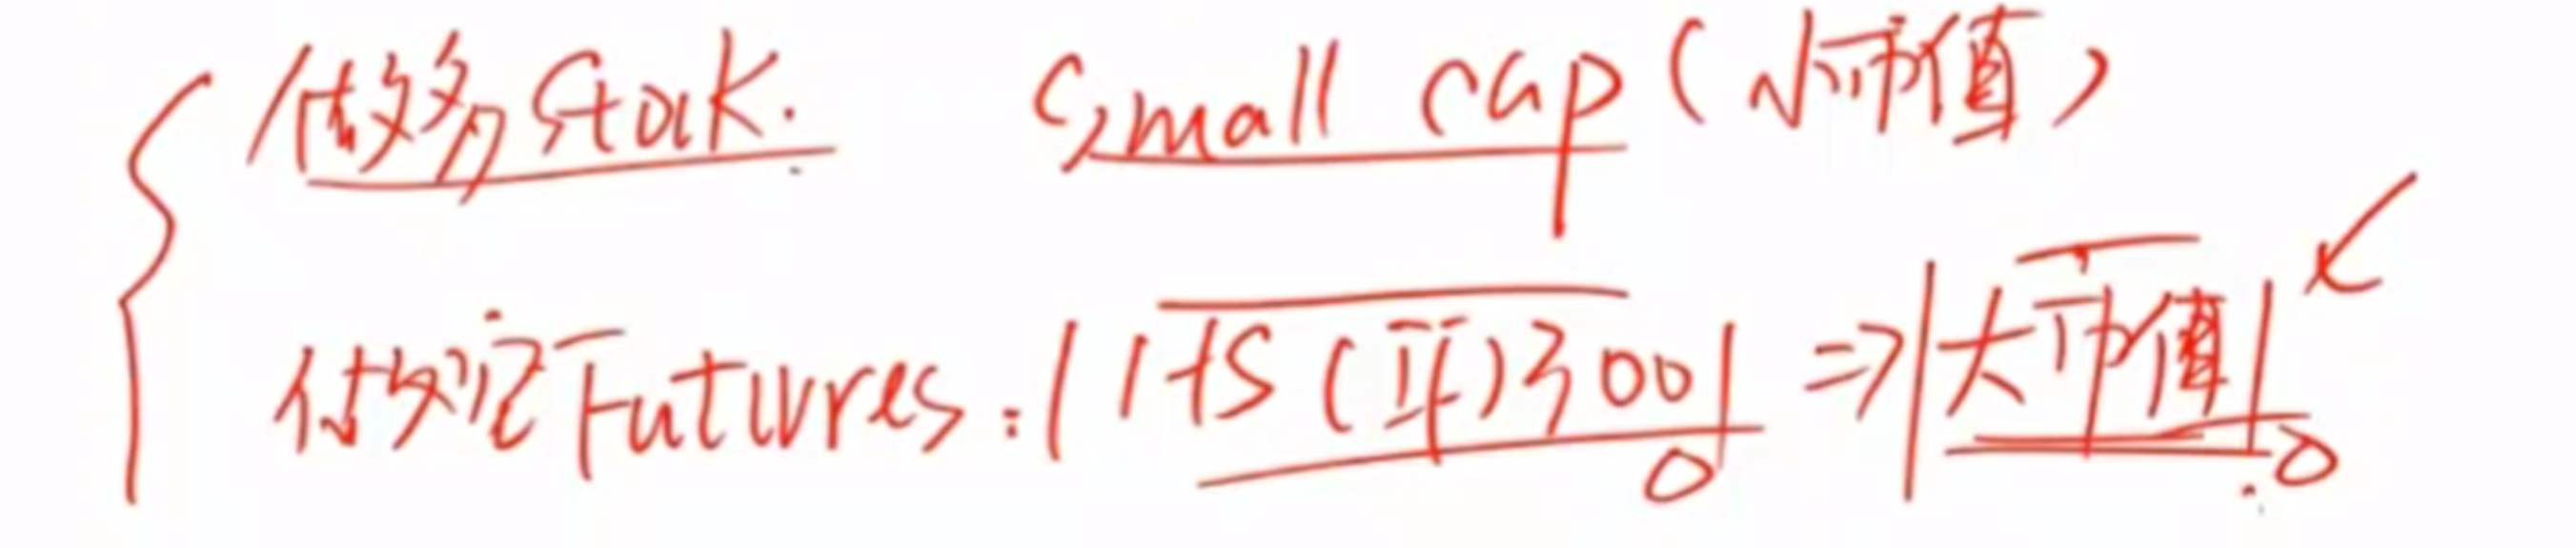 做多Stock. Small cap (小市值)
做空Futures: HS(沪)300 ⇒ 大市值